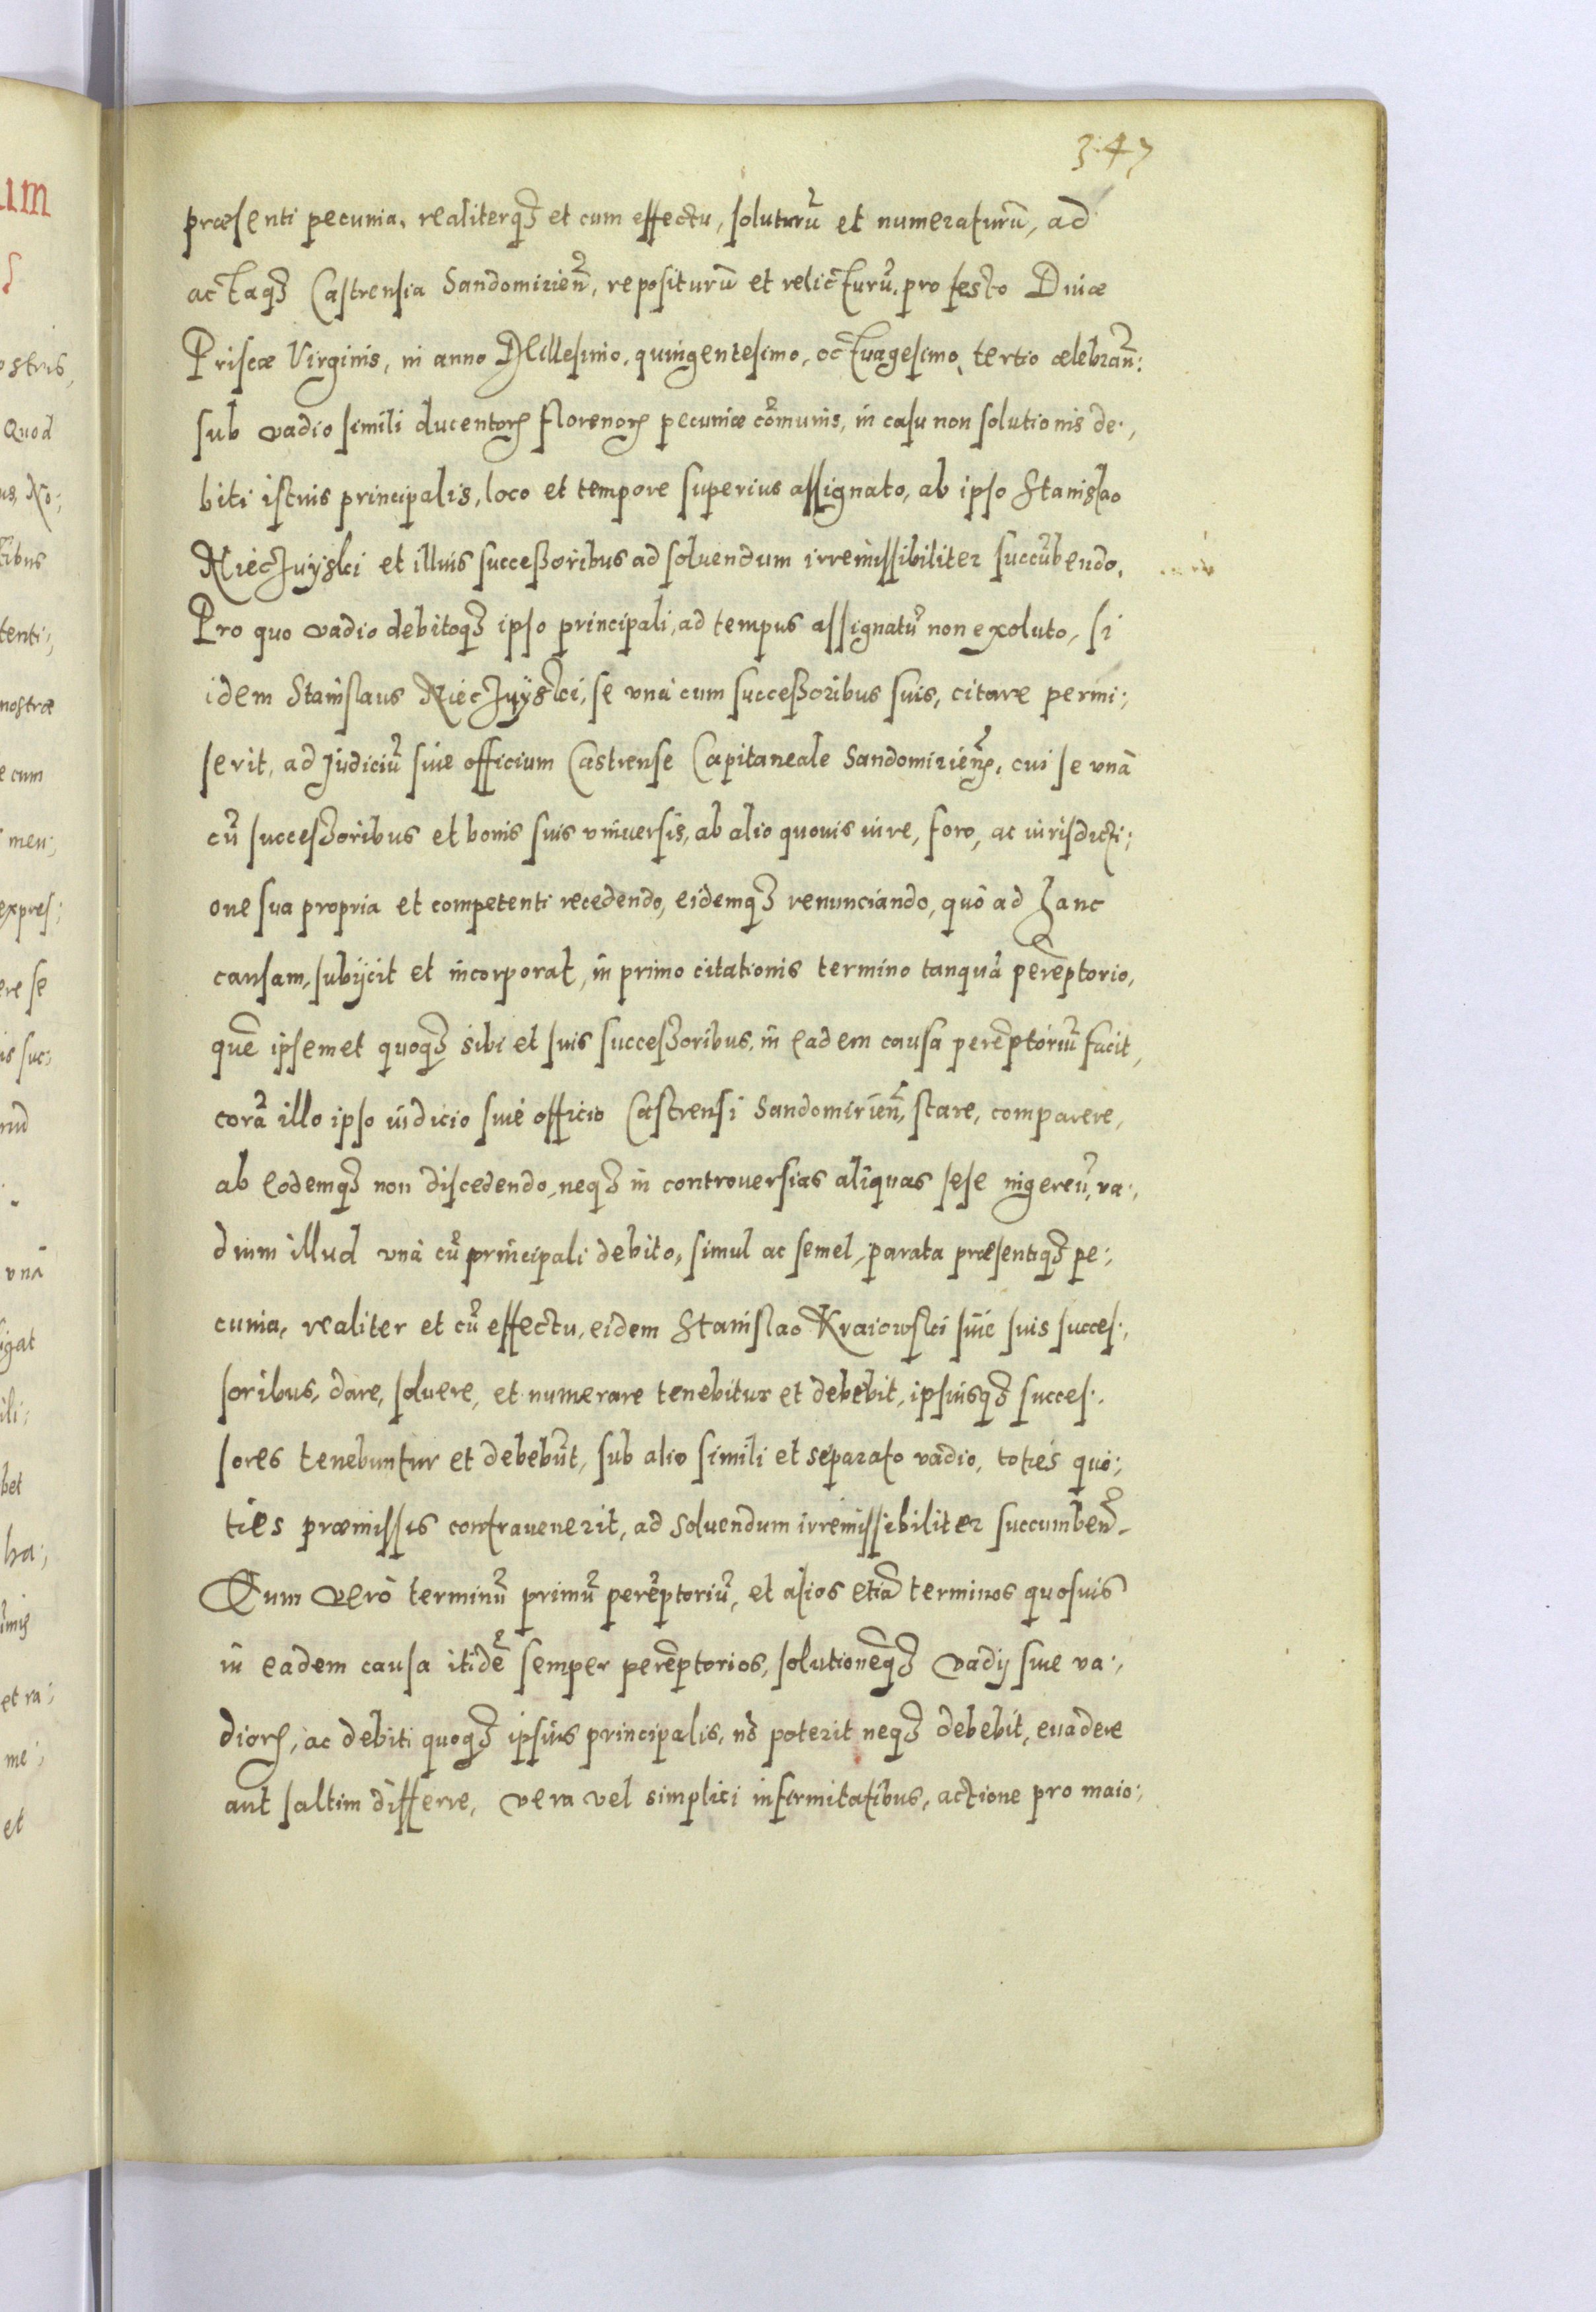 347
præsenti pecunia, realiterqʒ et cum effectu, soluturũ et numeraturũ, ad
actaqʒ Castrensia Sandomirieñ, repositurũ et relicturũ, pro festo Diuæ
Priscæ Virginis, in anno Millesimo, quingentesimo, octuagesimo, tertio celebrañ:
sub vadio simili ducentorꝝ florenorꝝ pecuniæ cõmunis, in casu non solutionis de:,
biti istius principalis, loco et tempore superius assignato, ab ipso Stanislao
Niecżuÿski et illius successoribus ad soluendum irremissibiliter succũbendo.
Pro quo vadio debitoqʒ ipso principali, ad tempus assignatũ non exoluto, si
idem Stanislaus Niecżuÿski, se vnà cum successoribus suis, citare permi:,
serit, ad Judiciũ siue officium Castrense Capitaneale Sandomirieñ, cui se vnà
cũ successoribus et bonis suis vniuersis, ab alio quouis iure, foro, ac iurisdicti:,
one sua propria et competenti recedendo, eidemqʒ renunciando, quò ad hanc
causam, subijcit et incorporat, in primo citationis termino tanquã perẽptorio,
quẽ ipsemet quoqʒ sibi et suis successoribus, in eadem causa perẽptoriũ facit,
corã illo ipso iudicio siue officio Castrensi Sandomirieñ, stare, comparere,
ab eodemqʒ non discedendo, neqʒ in controuersias aliquas sese ingereñ, va:,
dium illud vnà cũ principali debito, simul ac semel, parata præsentiqʒ pe:,
cunia, realiter et cũ effectu, eidem Stanislao Kraiowski siue suis succes:,
soribus, dare, soluere, et numerare tenebitur et debebit, ipsiusqʒ succes:,
sores tenebuntur et debebũt, sub alio simili et separato vadio, toties quo:,
ties præmissis contrauenerit, ad soluendum irremissibiliter succumbeñ.
Quum verò terminũ primũ perẽptoriũ, et alios etiã terminos quosuis
in eadem causa itidẽ semper perẽptorios, solutionẽqʒ vadij siue va:,
diorꝝ, ac debiti quoqʒ ipsius principalis, nõ poterit neqʒ debebit, euadere
aut saltim differre, vera vel simplici infirmitatibus, actione pro maio:,